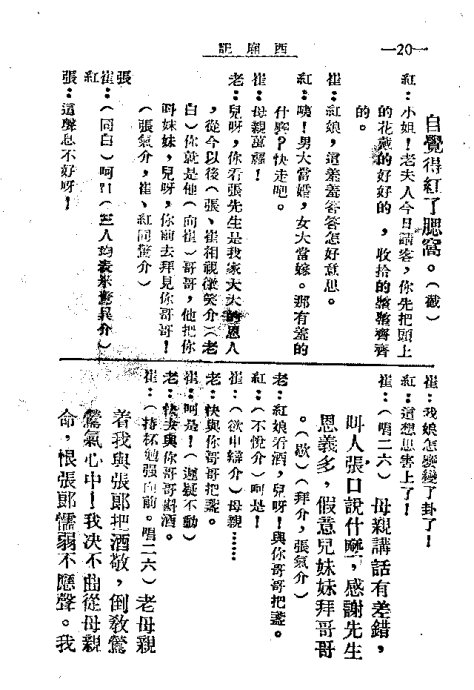 西廂記
—20—
自覺得紅了腮窩。（截）
紅：小姐！老夫人今日請客，你先把頭上
的花戴的好好的，收拾的整整齊齊
的。
崔：紅娘，這羞羞答答怎好意思。
紅：咦！男大當婚，女大當嫁。那有羞的
什麼？快走吧。
崔：母親萬福！
老：兒呀，你看張先生是我家大大的恩人
，從今以後（張、崔相視微笑介）（老
白）你就是他（向崔）哥哥，他把你
叫妹妹，兒呀，你前去拜見你哥哥！
（張氣介，崔、紅同驚介）
張
崔：（同白）呵？！（三人均表示驚異介）
紅
張：這聲息不好呀！
崔：我娘怎麼變了卦了！
紅：這想思害上了！
崔：（唱二六）母親講話有差錯，
叫人張口說什麼，感謝先生
恩義多，假意兒妹妹拜哥哥
。（歇）（拜介，張氣介）
老：紅娘看酒，兒呀！與你哥哥把盞。
紅：（不悅介）呵是！
崔：（欲申辯介）母親……
老：快與你哥哥把盞。
崔：呵是！（遲疑不動）
老：快去與你哥哥斟酒。
崔：（持杯勉強向前。唱二六）老母親
着我與張郎把酒敬，倒教鶯
鶯氣心中！我決不曲從母親
命，恨張郎懦弱不應聲。我